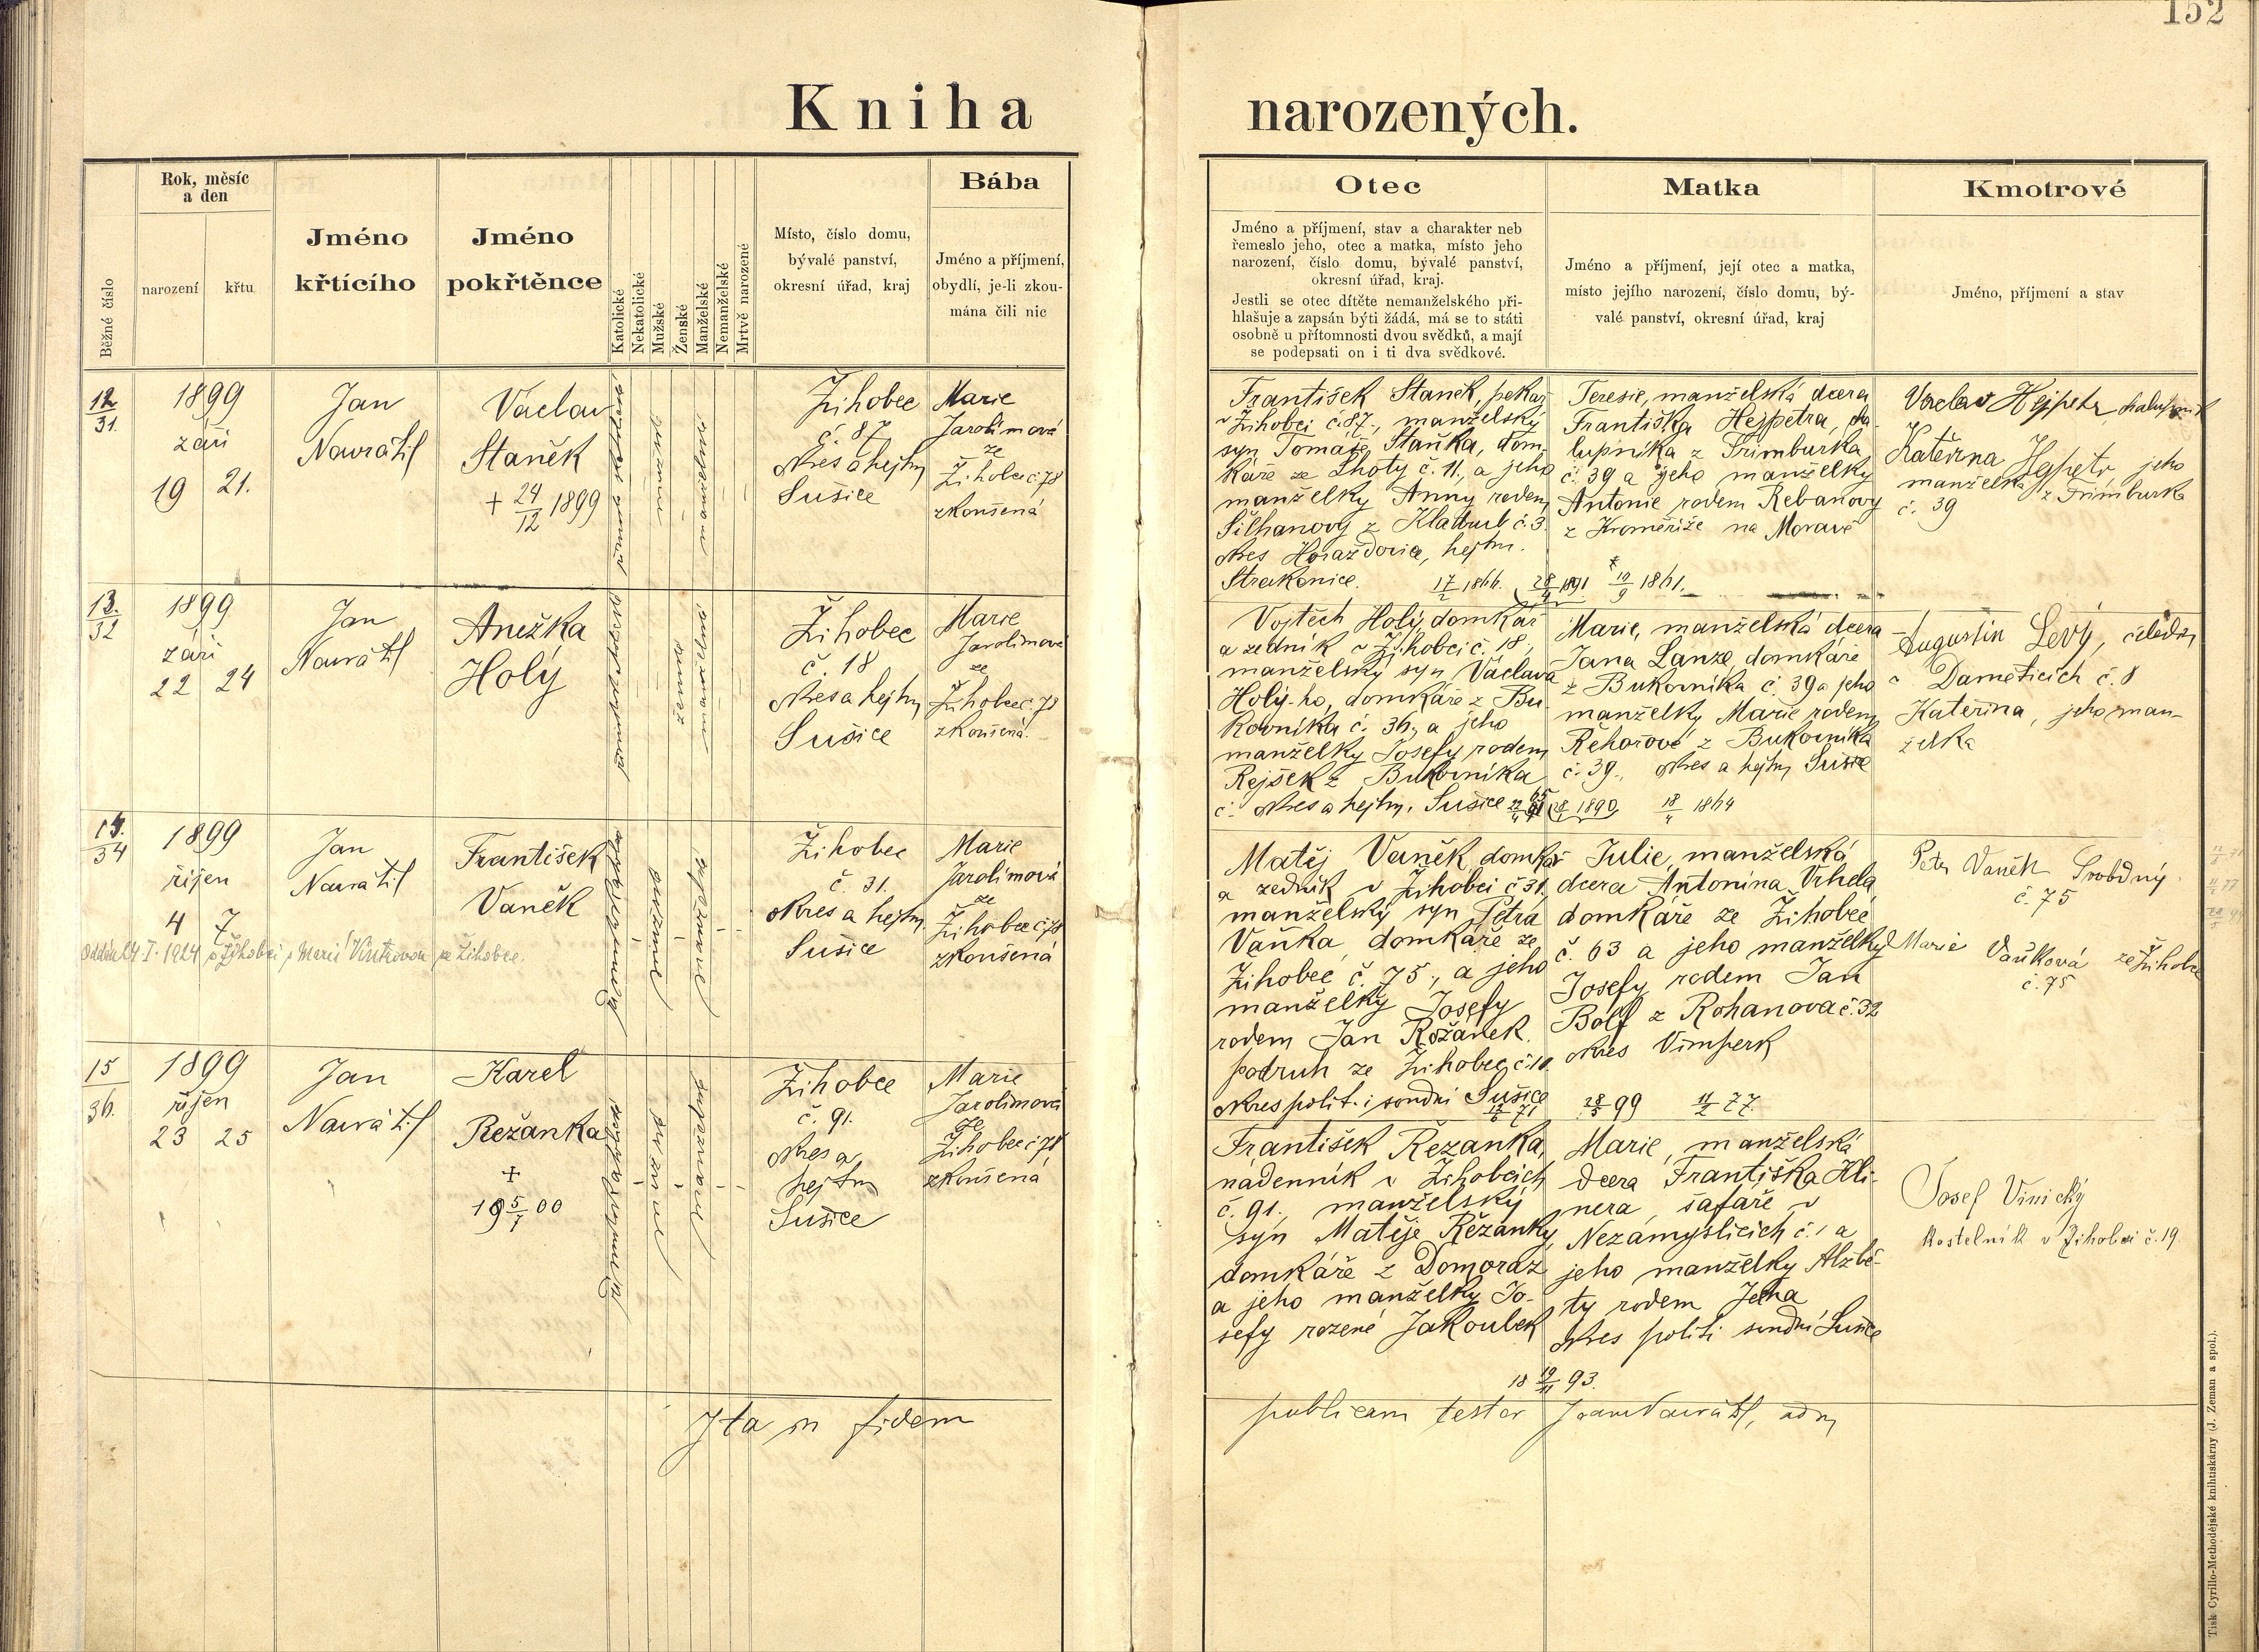 152
Kniha narozených.
Běžné číslo
Rok, měsíc
a den
narození
křtu
Jméno
křtícího
Jméno
pokřtěnce
Katolické
Nekatolické
Mužské
Ženské
Manželské
Nemanželské
Mrtvě narozené
Místo, číslo domu,
bývalé panství,
okresní úřad, kraj
Bába
Jméno a příjmení,
obydlí, je-li zkou-
mána čili nic
Otec
Jméno a příjmení, stav a charakter neb
řemeslo jeho, otec a matka, místo jeho
narození, číslo domu, bývalé panství,
okresní úřad, kraj.
Jestli se otec dítěte nemanželského při-
hlašuje a zapsán býti žádá, má se to státi
osobně u přítomnosti dvou svědků, a mají
se podepsati on i ti dva svědkové.
Matka
Jméno a příjmení, její otec a matka,
místo jejího narození, číslo domu, bý-
valé panství, okresní úřad, kraj
Kmotrové
Jméno, příjmení a stav
12
31.
1899
září
19 21.
Jan
Navrátil
Vaclav
Staněk
+ 24/12 1899
Žihobec
č. 87
okres a hejtm
Sušice
Marie
Jarolímová
ze
Žihobec č. 78
zkoušená
František Staněk, pekař
v Žihobci č. 87., manželský
syn Tomáše Staňka, dom-
káře ze Lhoty č. 11., a jeho
manželky Anny rodem
Šilhanový z Kladrub č. 3.
okres Horažďovice, hejtm.
Strakonice. 17/2 1866. 28/4 1891
Teresie, manželská dcera
Františka Hejpetra, cha-
lupníka z Frimburka
č. 39 a jeho manželky
Antonie rodem Rebanový
z Kroměříže na Moravě
* 10/9 1861.
Vaclav Hejpetr, chalupník
Kateřina Hejpetr jeho
manželka z Frimburka
č. 39
13.
32
1899
září
22 24
Jan
Navrátil
Anežka
Holý
ženské
manželské
Žihobec
č. 18
okres a hejtm
Sušice
Marie
Jarolímová
ze
Žihobec č. 78
zkoušená.
Vojtěch Holý, domkář
a zedník v Žihobci č. 18,
manželský syn Václava
Holý-ho, domkáře z Bu-
kovníka č. 36., a jeho
manželky Josefy rodem
Rejšek z Bukovníka
č. okres a hejtm. Sušice
Marie, manželská dcera
Jana Lanze, domkáře
z Bukovníka č. 39 a jeho
manželky Marie rodem
Řehořové z Bukovníka
č. 39., okres a hejtm Sušice
1890 18/4 1864
Augustin Levý, čeledín
v Daměticích č. 8
Kateřina, jeho man-
želka
14.
34
1899
říjen
4 7
Jan
Navrátil
František
Vaněk
Oddán 24.I.1924 v Žihobci s Marií ze Žihobce.
Žihobec
č. 31.
okres a hejtm.
Sušice
Marie
Jarolímová
ze
Žihobec č. 78
zkoušená
Matěj Vaněk domkář
a zedník v Žihobci č. 31,
manželský syn Petra
Vaňka, domkáře ze
Žihobec č. 75., a jeho
manželky Josefy
rodem Jan Rožánek.
podruh ze Žihobec č. 10.
okres polit. i soudní Sušice
17/2 71
Julie, manželská
dcera Antonína Vrhela
domkáře ze Žihobec
č. 63 a jeho manželky
Josefy rodem Jan
Bolf z Rohanova č. 32
okres Vimperk
28/5 99 11/2 77.
Petr Vaněk Svobdný.
č. 75
Marie Vaňková ze Žihobce
č. 75
15
36.
1899
říjen
23 25
Jan
Navrátil
Karel
Řežanka
+
19 5/7 00
Žihobec
č. 91.
okres a
hejtm
Sušice
Marie
Jarolímová
ze
Žihobec č. 78
zkoušená
František Řezanka,
nádenník v Žihobcích
č. 91., manželský
syn Matěje Řežanky,
domkáře z Domoraz
a jeho manželky Jo-
sefy rozené Jakoubek
Marie, manželská
dcera Františka Hli-
nera, šafáře v
Nezamyslicích č. 1 a
jeho manželky Alžbě-
ty rodem Jcha
okres polit. i soudní Sušice
18 19/11 93.
Josef Vinický
kostelník v Žihobci č. 19.
Ita in fidem publicam testor Joan Navrátil, adm
Tisk Cyrillo-Methodějské knihtiskárny (J. Zeman a spol.).